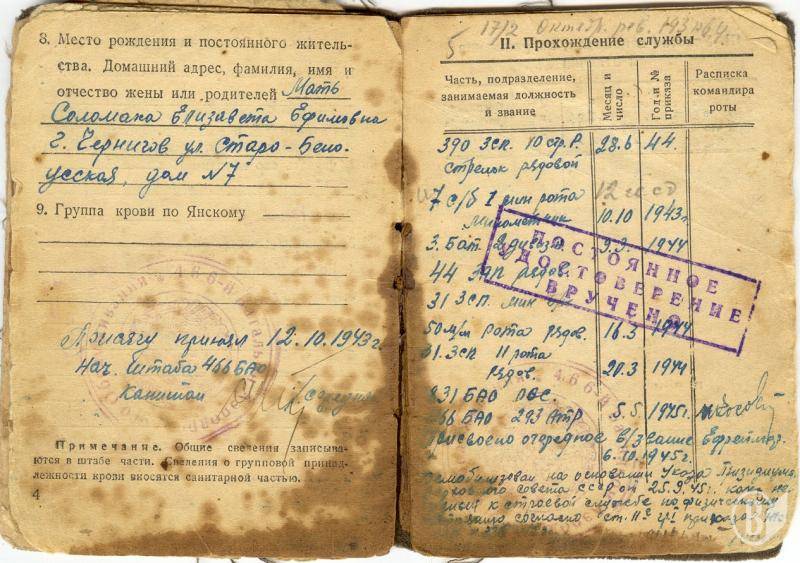 8. Место рождения и постоянного житель-
ства. Домашний адрес, фамилия, имя и
отчество жены или родителей Мать
Соломаха Елизавета Ефимовна
г. Чернигов ул. Старо-Бело-
усская, дом №7
9. Группа крови по Янскому
Присягу принял 12.10.1943г.
Нач. штаба 466 БАО
Капитан
Примечание. Общие сведения записыва-
ются в штабе части. Сведения о групповой принад-
лежности крови вносятся санитарной частью.
4
5 17/2 Октябр. рев.
II. Прохождение службы
Часть, подразделение, занимаемая должность и звание
Месяц и число
Год и № приказа
Расписка командира роты
390 ЗСП. 10 стр. р. 28.6 44.
стрелок рядовой
7 с/б 1 мин рота
минометчик 10.10 1943г
3. Бат. 1944
44 рядов.
31 ЗСП. мин
50 м/м рота рядов. 16.3 1944
31. ЗСП 11 рота
рядов. 20.3 1944
831 БАО
466 БАО 293 АТР 5.5 1945г.
Присвоено очередное в/звание Ефрейтор.
6.10.1945г.
Демобилизован на основании Указа Президиума
Верховного совета СССР от 25.9.45г. как не
годный к строевой службе по физическим
согласно
ПОСТОЯННОЕ
УДОСТОВЕРЕНИЕ
ВРУЧЕНО